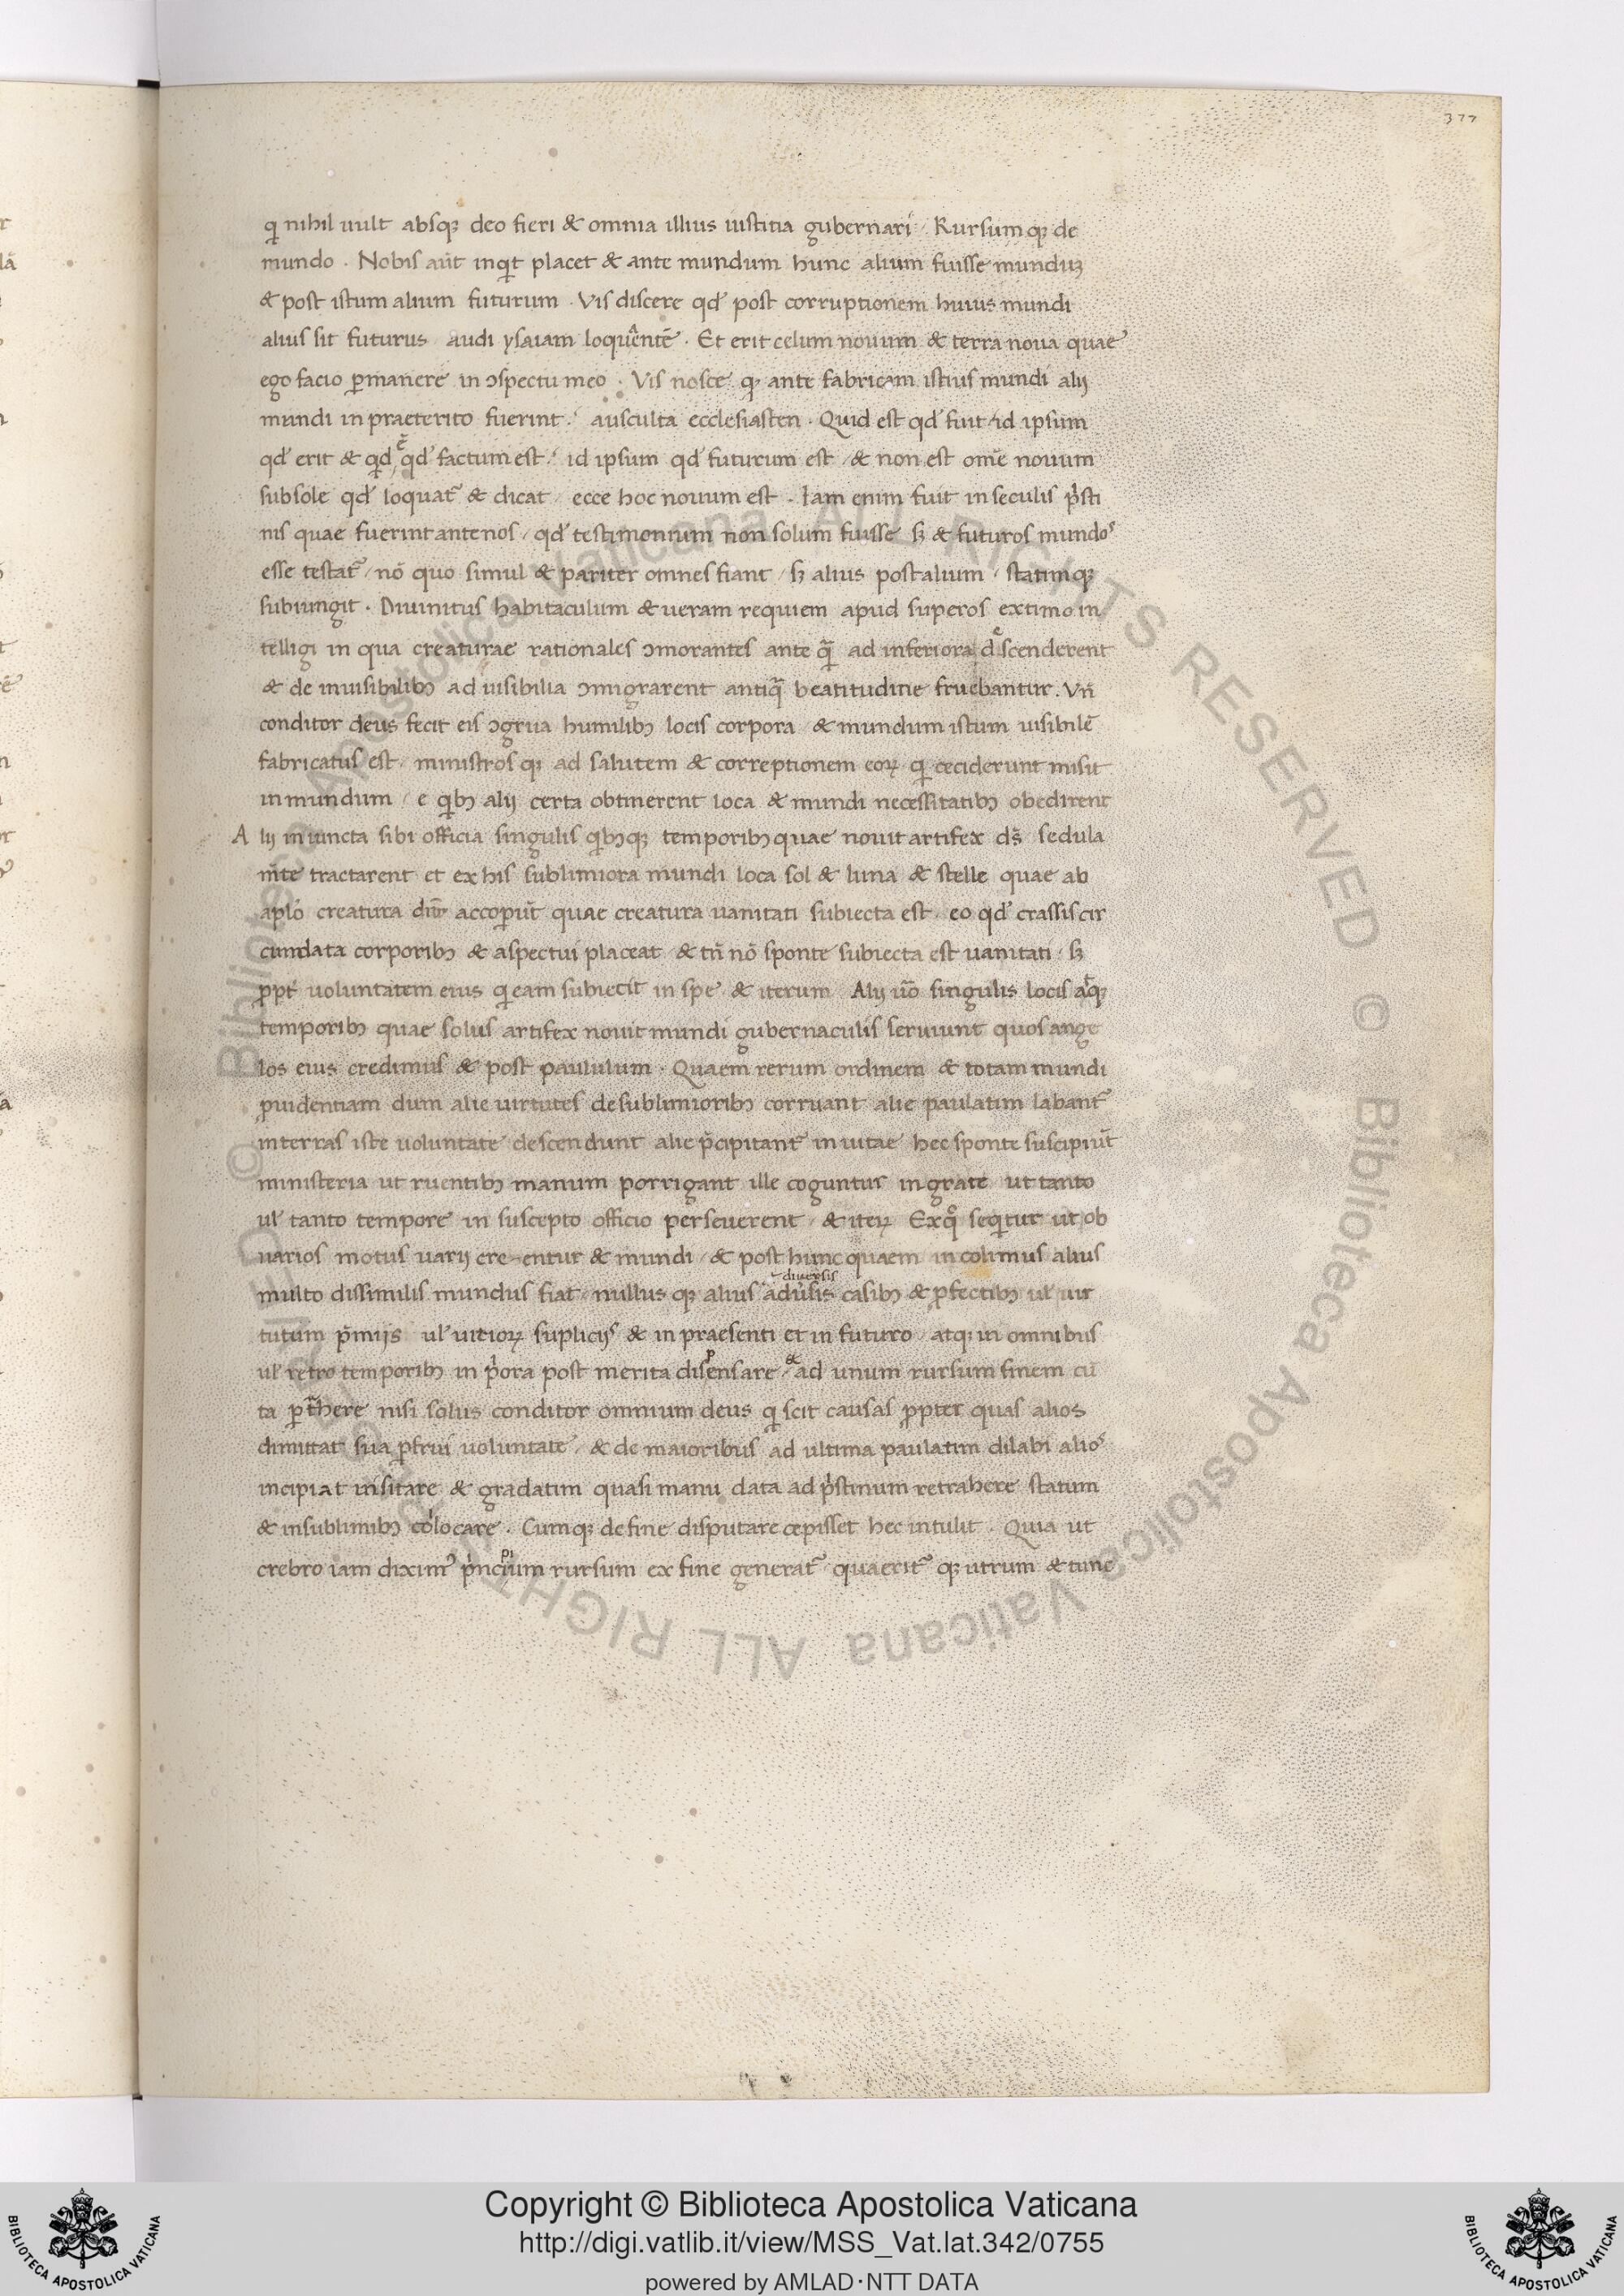 377
qͥ nihil uult absqꝫ deo fieri & omnia illius iustitia gubernari / Rursumqꝫ de
mundo . Nobis aūt inqͥt placet & ante mundum hunc alium fuisse munduꝫ
& post istum alium futurum . Vis discere qd̓ post corruptionem huius mundi
alius sit futurus audi ysaiam loquentē . Et erit celum nouum & terra noua quae
ego facio ꝑmanere in ↄspectu meo . Vis nosce qꝫ ante fabricam istius mundi alij
mundi in praeterito fuerint / ausculta ecclesiasten . Quid est qd̓ fuit / id ipsum
qd̓ erit & qͥd ē qd̓ factum est / id ipsum qd̓ futurum est / & non est om̄e nouum
sub sole qd̓ loquat᷑ & dicat / ecce hoc nouum est . Iam enim fuit in seculis pͥsti
nis quae fuerint ante nos / qd̓ testimonium non solum fuisse sꝫ & futuros mundoˢ
esse testat᷑ / nō quo simul & pariter omnes fiant / sꝫ alius post alium / statimqꝫ
subiungit . Diuinitus habitaculum & ueram requiem apud superos extimo in
telligi in qua creaturae rationales ↄmorantes ante qᷓ ad inferiora descenderent
& de inuisibilibꝫ ad uisibilia ↄmigrarent antiqᷓ beatitudine fruebantur . Vn̄
conditor deus fecit eis ↄgrua humilibꝫ locis corpora / & mundum istum uisibilē
fabricatus est / ministrosqꝫ ad salutem & correptionem eoꝝ qͥ ceciderunt misit
in mundum / e qͥbꝫ alij certa obtinerent loca & mundi necessitatibꝫ obedirent
A lij iniuncta sibi officia singulis qͥbꝫqꝫ temporibꝫ quae nouit artifex ds̄ sedula
m̄te tractarent et ex his sublimiora mundi loca sol & luna & stelle quae ab
aplo creatura dn̄r acceperūt quae creatura uanitati subiecta est / eo qd̓ crassis cir
cundata corporibꝫ & aspectui placeat / & tn̄ nō sponte subiecta est uanitati / sꝫ
ꝓpt̄ uoluntatem eius qͥ eam subiecit in spe / & iterum Alij uo᷑ singulis locis atqꝫ
temporibꝫ quae solus artifex nouit mundi gubernaculis seruiunt quos ange
los eius credimus & post paululum . Quaem rerum ordinem & totam mundi
ꝓuidentiam dum alie uirtutes de sublimioribꝫ corruant alie paulatim labant᷑
in terras iste uoluntate descendunt alie p̄cipitant᷑ inuitae hec sponte suscipiūt
ministeria ut ruentibꝫ manum porrigant ille coguntur ingrate ut tanto
ul̓ tanto tempore in suscepto officio perseuerent / & iteꝝ Ex qͦ seqͥtur ut ob
uarios motus uarij cre-entur & mundi / & post hunc quaem incolimus alius
multo dissimilis mundus fiat / nullusqꝫ alius adūsis casibꝫ & ꝓfectibꝫ ul̓ uir
diuersis
tutum p̄mijs ul̓ uitioꝝ suplicijˢ & in praesenti et in futuro / atqꝫ in omnibus
ul̓ retro temporibꝫ in pͥora post merita dispensare / & ad unum rursum finem cū
ta ꝑtᷓhere nisi solus conditor omnium deus qͥ scit causas ꝓpter quas alios
dimittat sua ꝑfrui uoluntate / & de maioribus ad ultima paulatim dilabi alioˢ
incipiat uisitare & gradatim quasi manu data ad pͥstinum retrahere statum
& in sublimibꝫ colocare . Cumqꝫ de fine disputare cepisset hec intulit . Quia ut
crebro iam diximꝰ pͥncipium rursum ex fine generat᷑ quaerit᷑qꝫ utrum & tunc
Copyright © Biblioteca Apostolica Vaticana
http://digi.vatlib.it/view/MSS_Vat.lat.342/0755
powered by AMLAD·NTT DATA